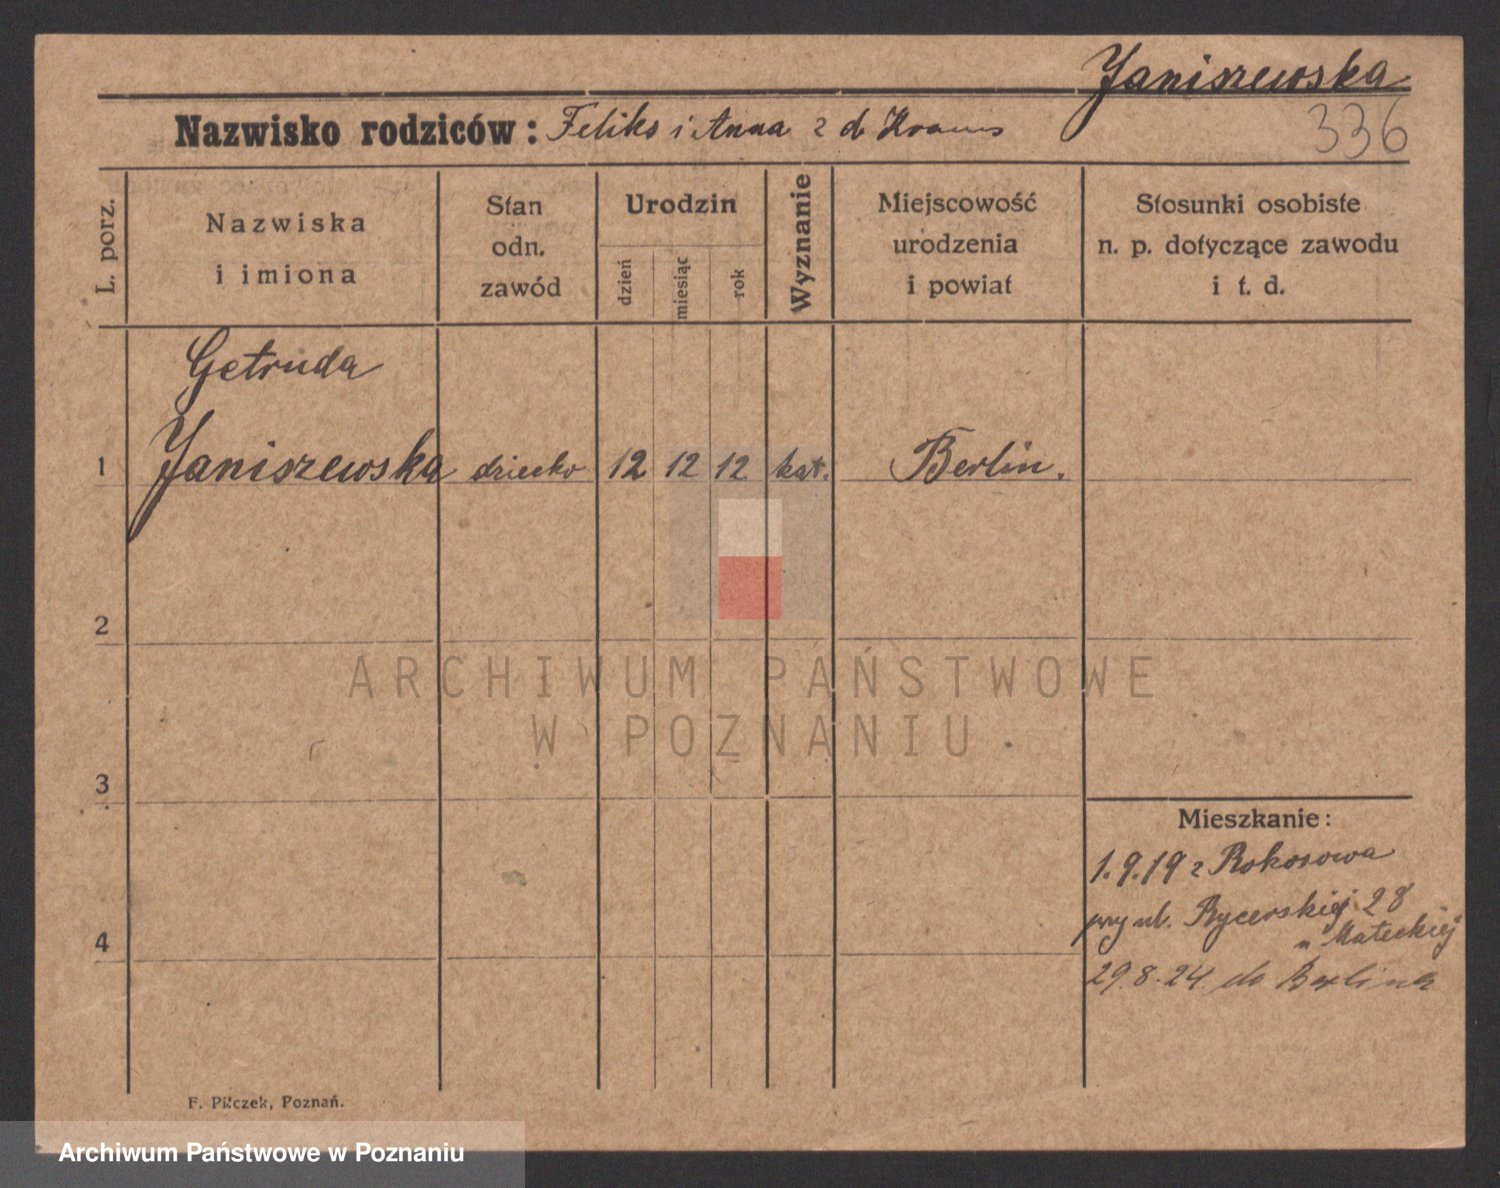 Janiszewska
Nazwisko rodziców: Feliks i Anna z d Kraus
336
L. porz.
Nazwiska
i imiona
Stan
odn.
zawód
Urodzin
dzień
miesiąc
rok
Wyznanie
Miejscowość
urodzenia
i powiat
Stosunki osobiste
n. p. dotyczące zawodu
i t. d.
Getruda
1 Janiszewska dziecko 12 12 12 kat. Berlin.
2
ARCHIWUM PAŃSTWOWE
W POZNANIU
3
Mieszkanie:
1.9.19 z Rokosowa
przy ul. Rycerskiej 28
u Mateckiej
4
29.8.24. do Berlina
F. Pilczek, Poznań.
Archiwum Państwowe w Poznaniu